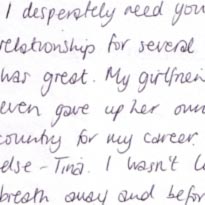 I desperately need you
relationship for several
was great. My girlfrien
even gave up her own
country for my career.
else - Tina. I wasn't l
breath away and befor